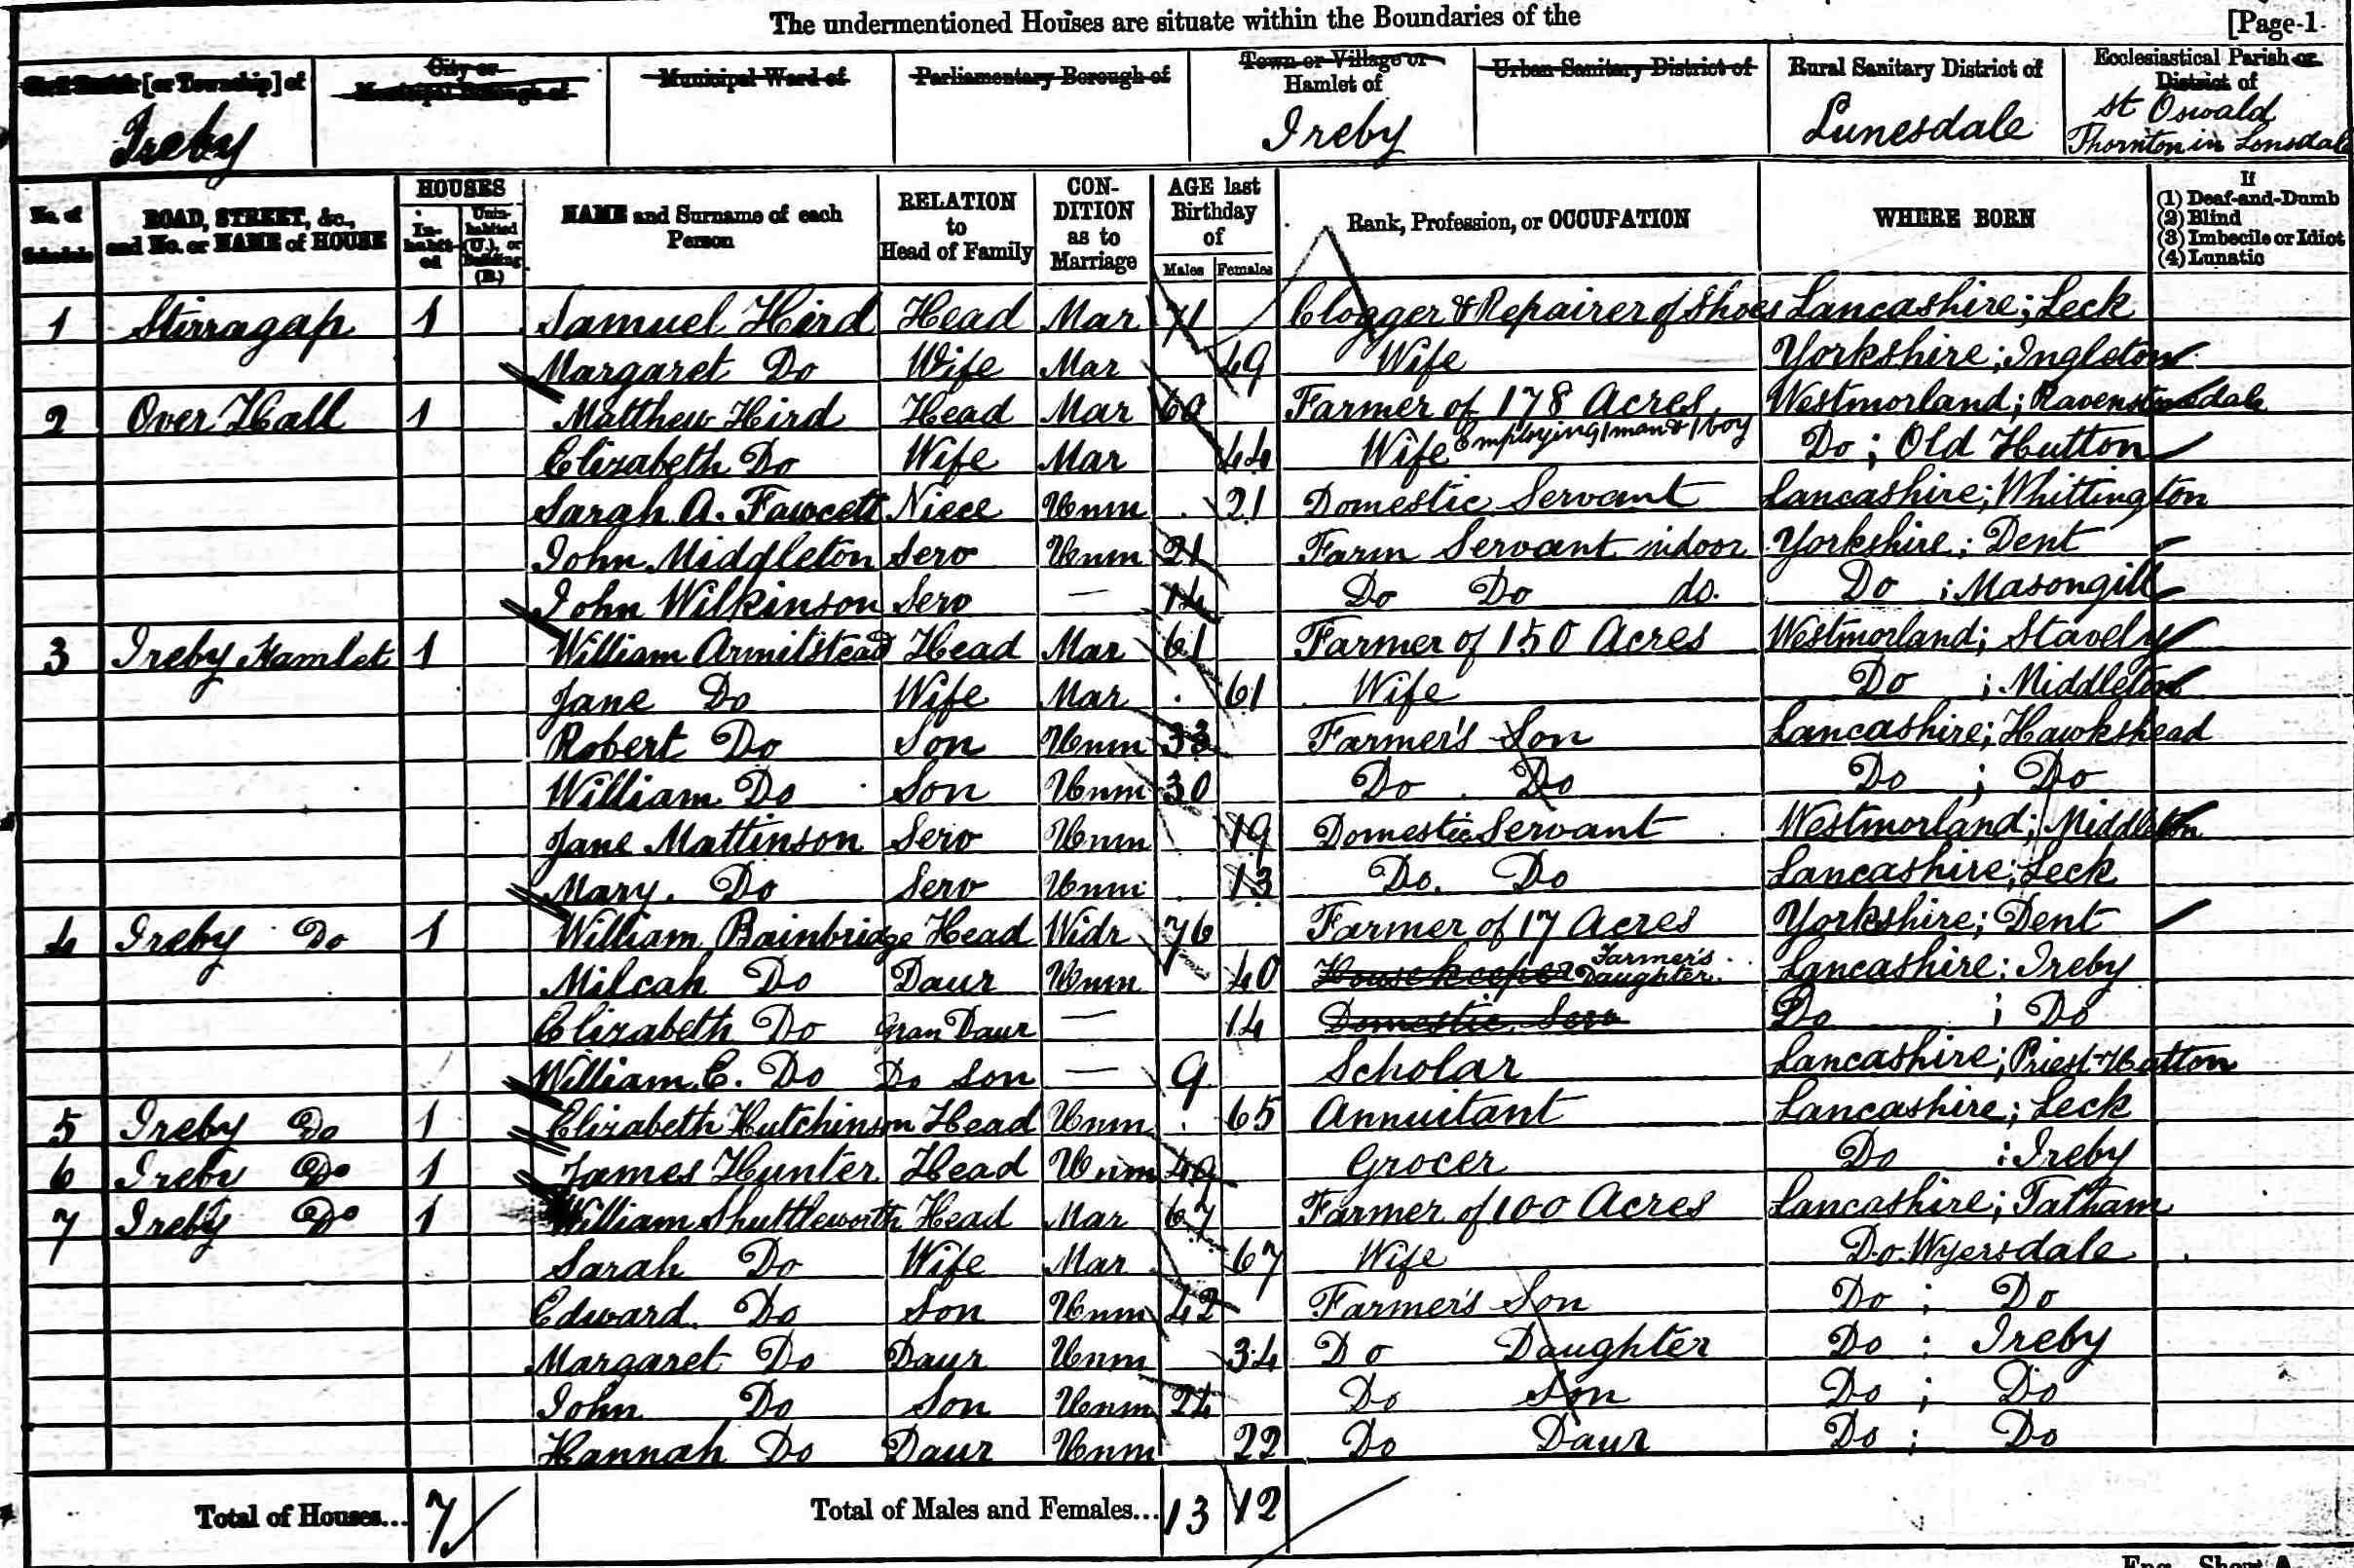 The undermentioned Houses are situate within the Boundaries of the [Page 1
[or Township] of City or Municipal Borough of Municipal Ward of Parliamentary Borough of Town or Village or Hamlet of Urban Sanitary District of Rural Sanitary District of Ecclesiastical Parish or District of
Ireby Ireby Lunesdale St Oswald Thornton in Lonsdale
No. of Schedule ROAD, STREET, &c., and No. or NAME of HOUSE HOUSES In-habit-ed Unin-habited (U.), or Building (B.) NAME and Surname of each Person RELATION to Head of Family CON-DITION as to Marriage AGE last Birthday of Males Females Rank, Profession, or OCCUPATION WHERE BORN If (1) Deaf-and-Dumb (2) Blind (3) Imbecile or Idiot (4) Lunatic
1 Stirragap 1 Samuel Hird Head Mar 71 Clogger & Repairer of Shoes Lancashire; Leck
Margaret Do Wife Mar 49 Wife Yorkshire; Ingleton
2 Over Hall 1 Matthew Hird Head Mar Farmer of 178 Acres, Employing 1 man & 1 boy Westmorland; Ravenstonedale
Elizabeth Do Wife Mar 44 Wife Do; Old Hutton
Sarah A. Fawcett Niece Unm 21 Domestic Servant Lancashire; Whittington
John Middleton Serv Unm 21 Farm Servant indoor Yorkshire; Dent
John Wilkinson Serv — 14 Do Do do. Do; Masongill
3 Ireby Hamlet 1 William Armitstead Head Mar 61 Farmer of 150 Acres Westmorland; Stavely
Jane Do Wife Mar 61 Wife Do; Middleton
Robert Do Son Unm 33 Farmer's Son Lancashire; Hawkshead
William Do Son Unm 30 Do Do Do; Do
Jane Mattinson Serv Unm 19 Domestic Servant Westmorland; Middleton
Mary Do Serv Unm 13 Do. Do Lancashire; Leck
4 Ireby Do 1 William Bainbridge Head Widr 76 Farmer of 17 Acres Yorkshire; Dent
Milcah Do Daur Unm 40 Housekeeper Farmer's Daughter Lancashire; Ireby
Elizabeth Do Gran Daur — 14 Domestic Serv Do; Do
William C. Do Do Son — 9 Scholar Lancashire; Priest-Hutton
5 Ireby Do 1 Elizabeth Hutchinson Head Unm 65 Annuitant Lancashire; Leck
6 Ireby Do 1 James Hunter Head Unm 49 Grocer Do; Ireby
7 Ireby Do 1 William Shuttleworth Head Mar 67 Farmer of 100 Acres Lancashire; Tatham
Sarah Do Wife Mar 67 Wife Do Wyersdale
Edward Do Son Unm 42 Farmer's Son Do; Do
Margaret Do Daur Unm 34 Do Daughter Do; Ireby
John Do Son Unm 24 Do Son Do; Do
Hannah Do Daur Unm 22 Do Daur Do; Do
Total of Houses... 7 Total of Males and Females... 13 12